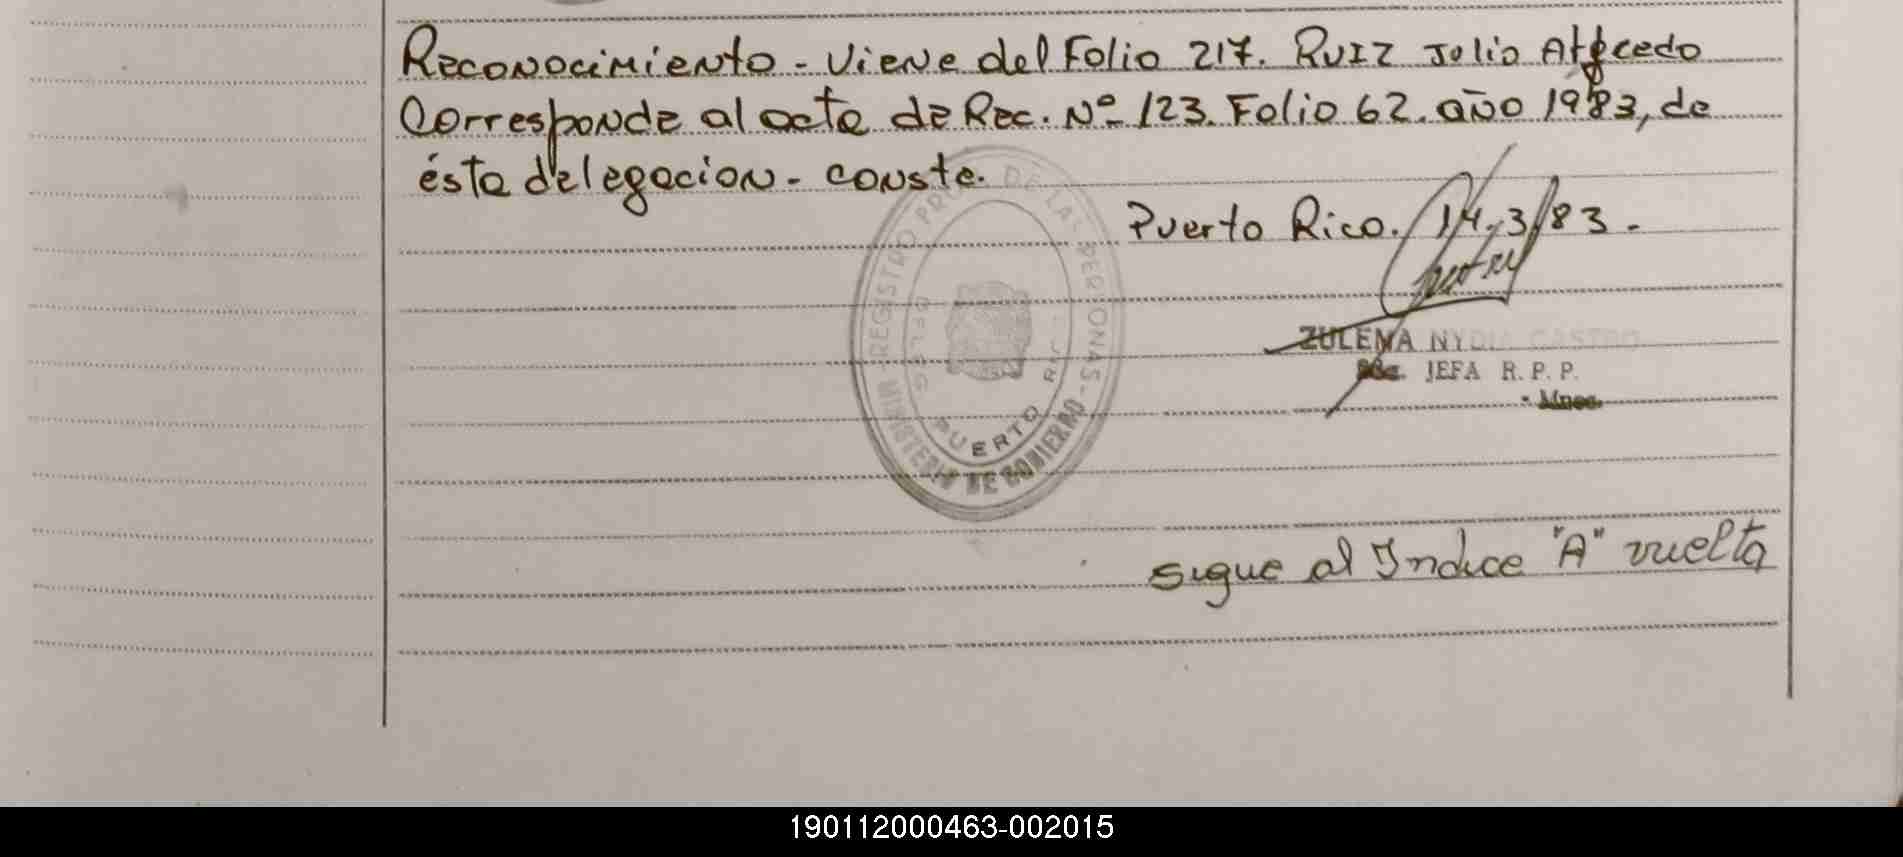 Reconocimiento - Viene del Folio 217. RUIZ Julio Alfredo
Corresponde al acta de Rec. Nº 123. Folio 62. año 1983, de
ésta delegacion - conste.
Puerto Rico. 14.3/83.-
REGISTRO PROV. DE LAS PERSONAS -
MINISTERIO DE GOBIERNO
DELEG.
PUERTO RICO
ZULEMA NYDIA CASTRO
JEFA R. P. P.
- Mnes.
sigue al Indice "A" vuelta
190112000463-002015